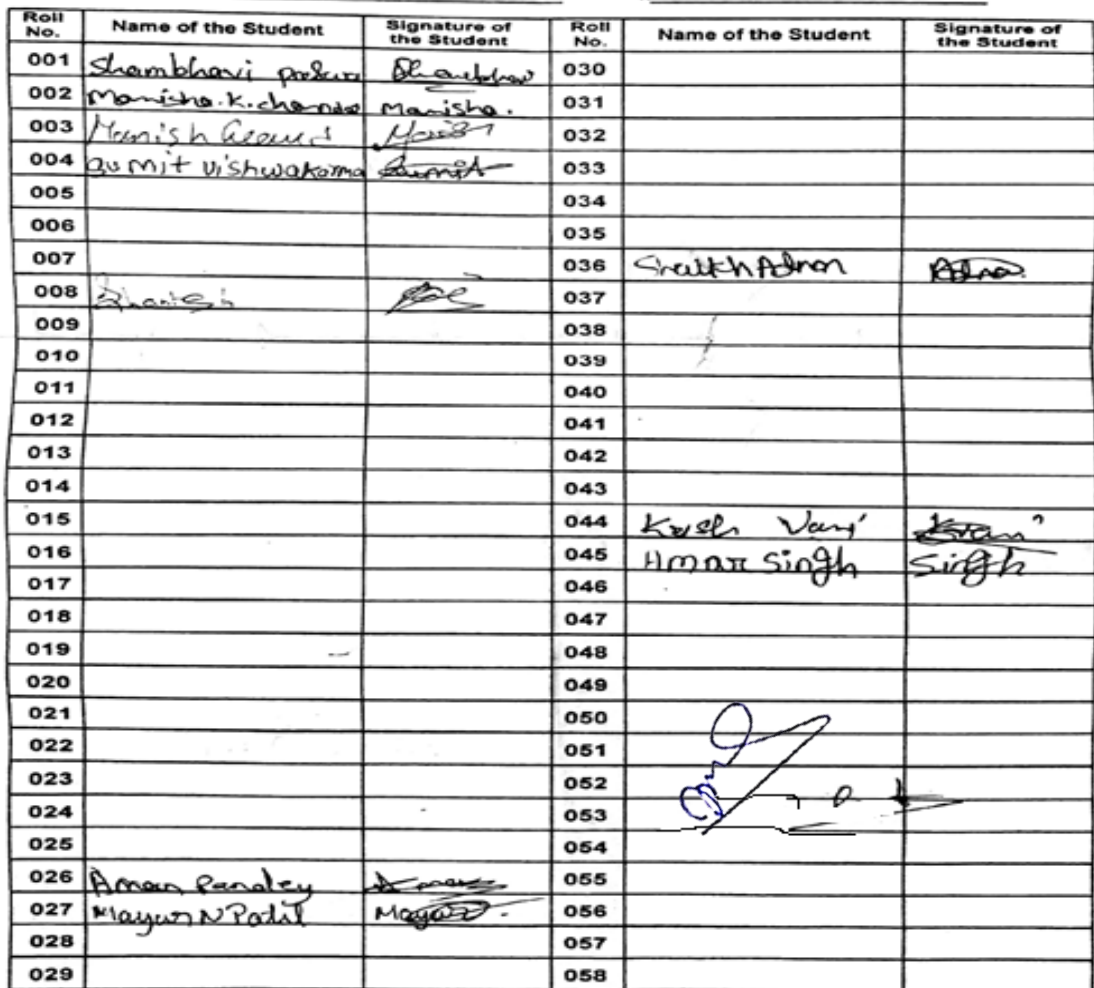 Roll No. Name of the Student Signature of the Student Roll No. Name of the Student Signature of the Student
001 Shambhavi 030
002 Manisha.K. Manisha. 031
003 Manish 032
004 Sumit Vishwakarma Sumit 033
005 034
006 035
007 036 Shaikh Adnan Adna
008 037
009 038
010 039
011 040
012 041
013 042
014 043
015 044 Krish Vani
016 045 Amar Singh Singh
017 046
018 047
019 048
020 049
021 050
022 051
023 052
024 053
025 054
026 Aman Pandey 055
027 Mayur N Patil Mayur 056
028 057
029 058